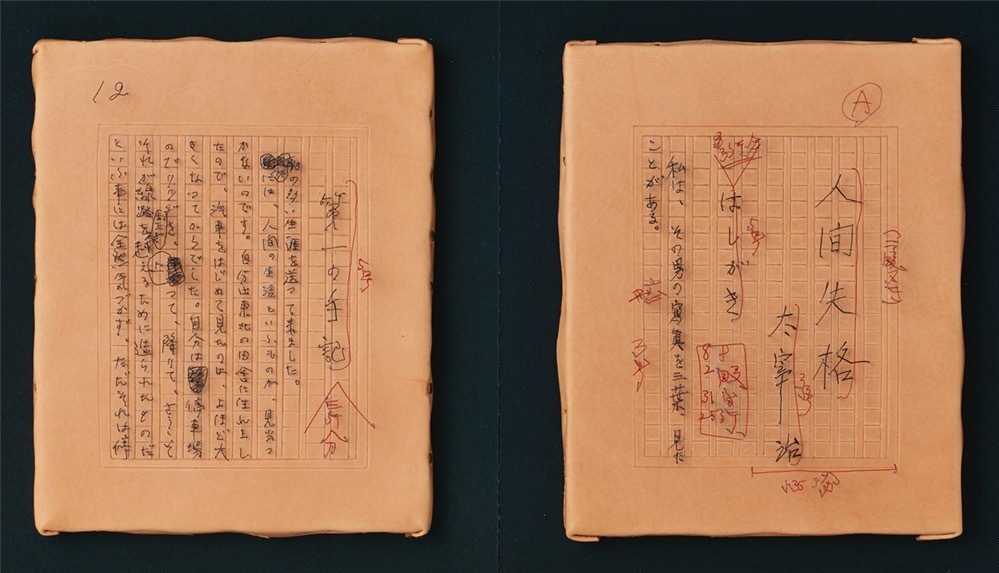 A
人間失格
太宰治
はしがき
5号
3号
私は、その男の寫眞を三葉、見た
ことがある。
12
第一の手記
5号
三行分
恥の多い生涯を送つて来ました。
自分には、人間の生活といふものが、見当つ
かないのです。自分は東北の田舎に生れまし
たので、汽車をはじめて見たのは、よほど大
きくなつてからでした。自分は停車場
のブリッヂを、上つて、降りて、さうして
それが線路をまたぎ越えるために造られたものだ
といふ事には全然気づかず、ただそれは停